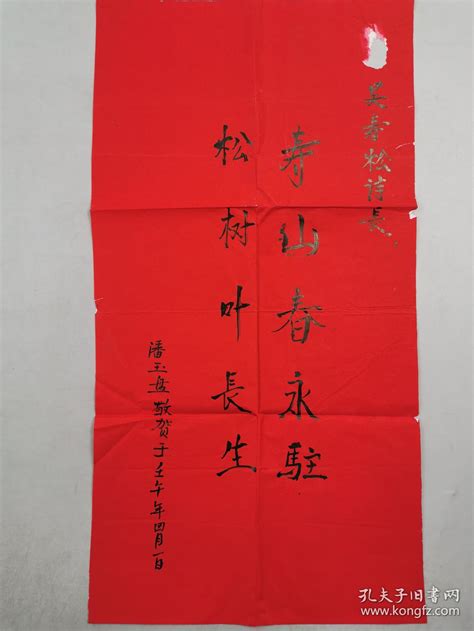 吴寿松诗長
寿山春永駐
松树叶長生
潘玉盘敬贺于壬午年四月一日
孔夫子旧书网
www.kongfz.com